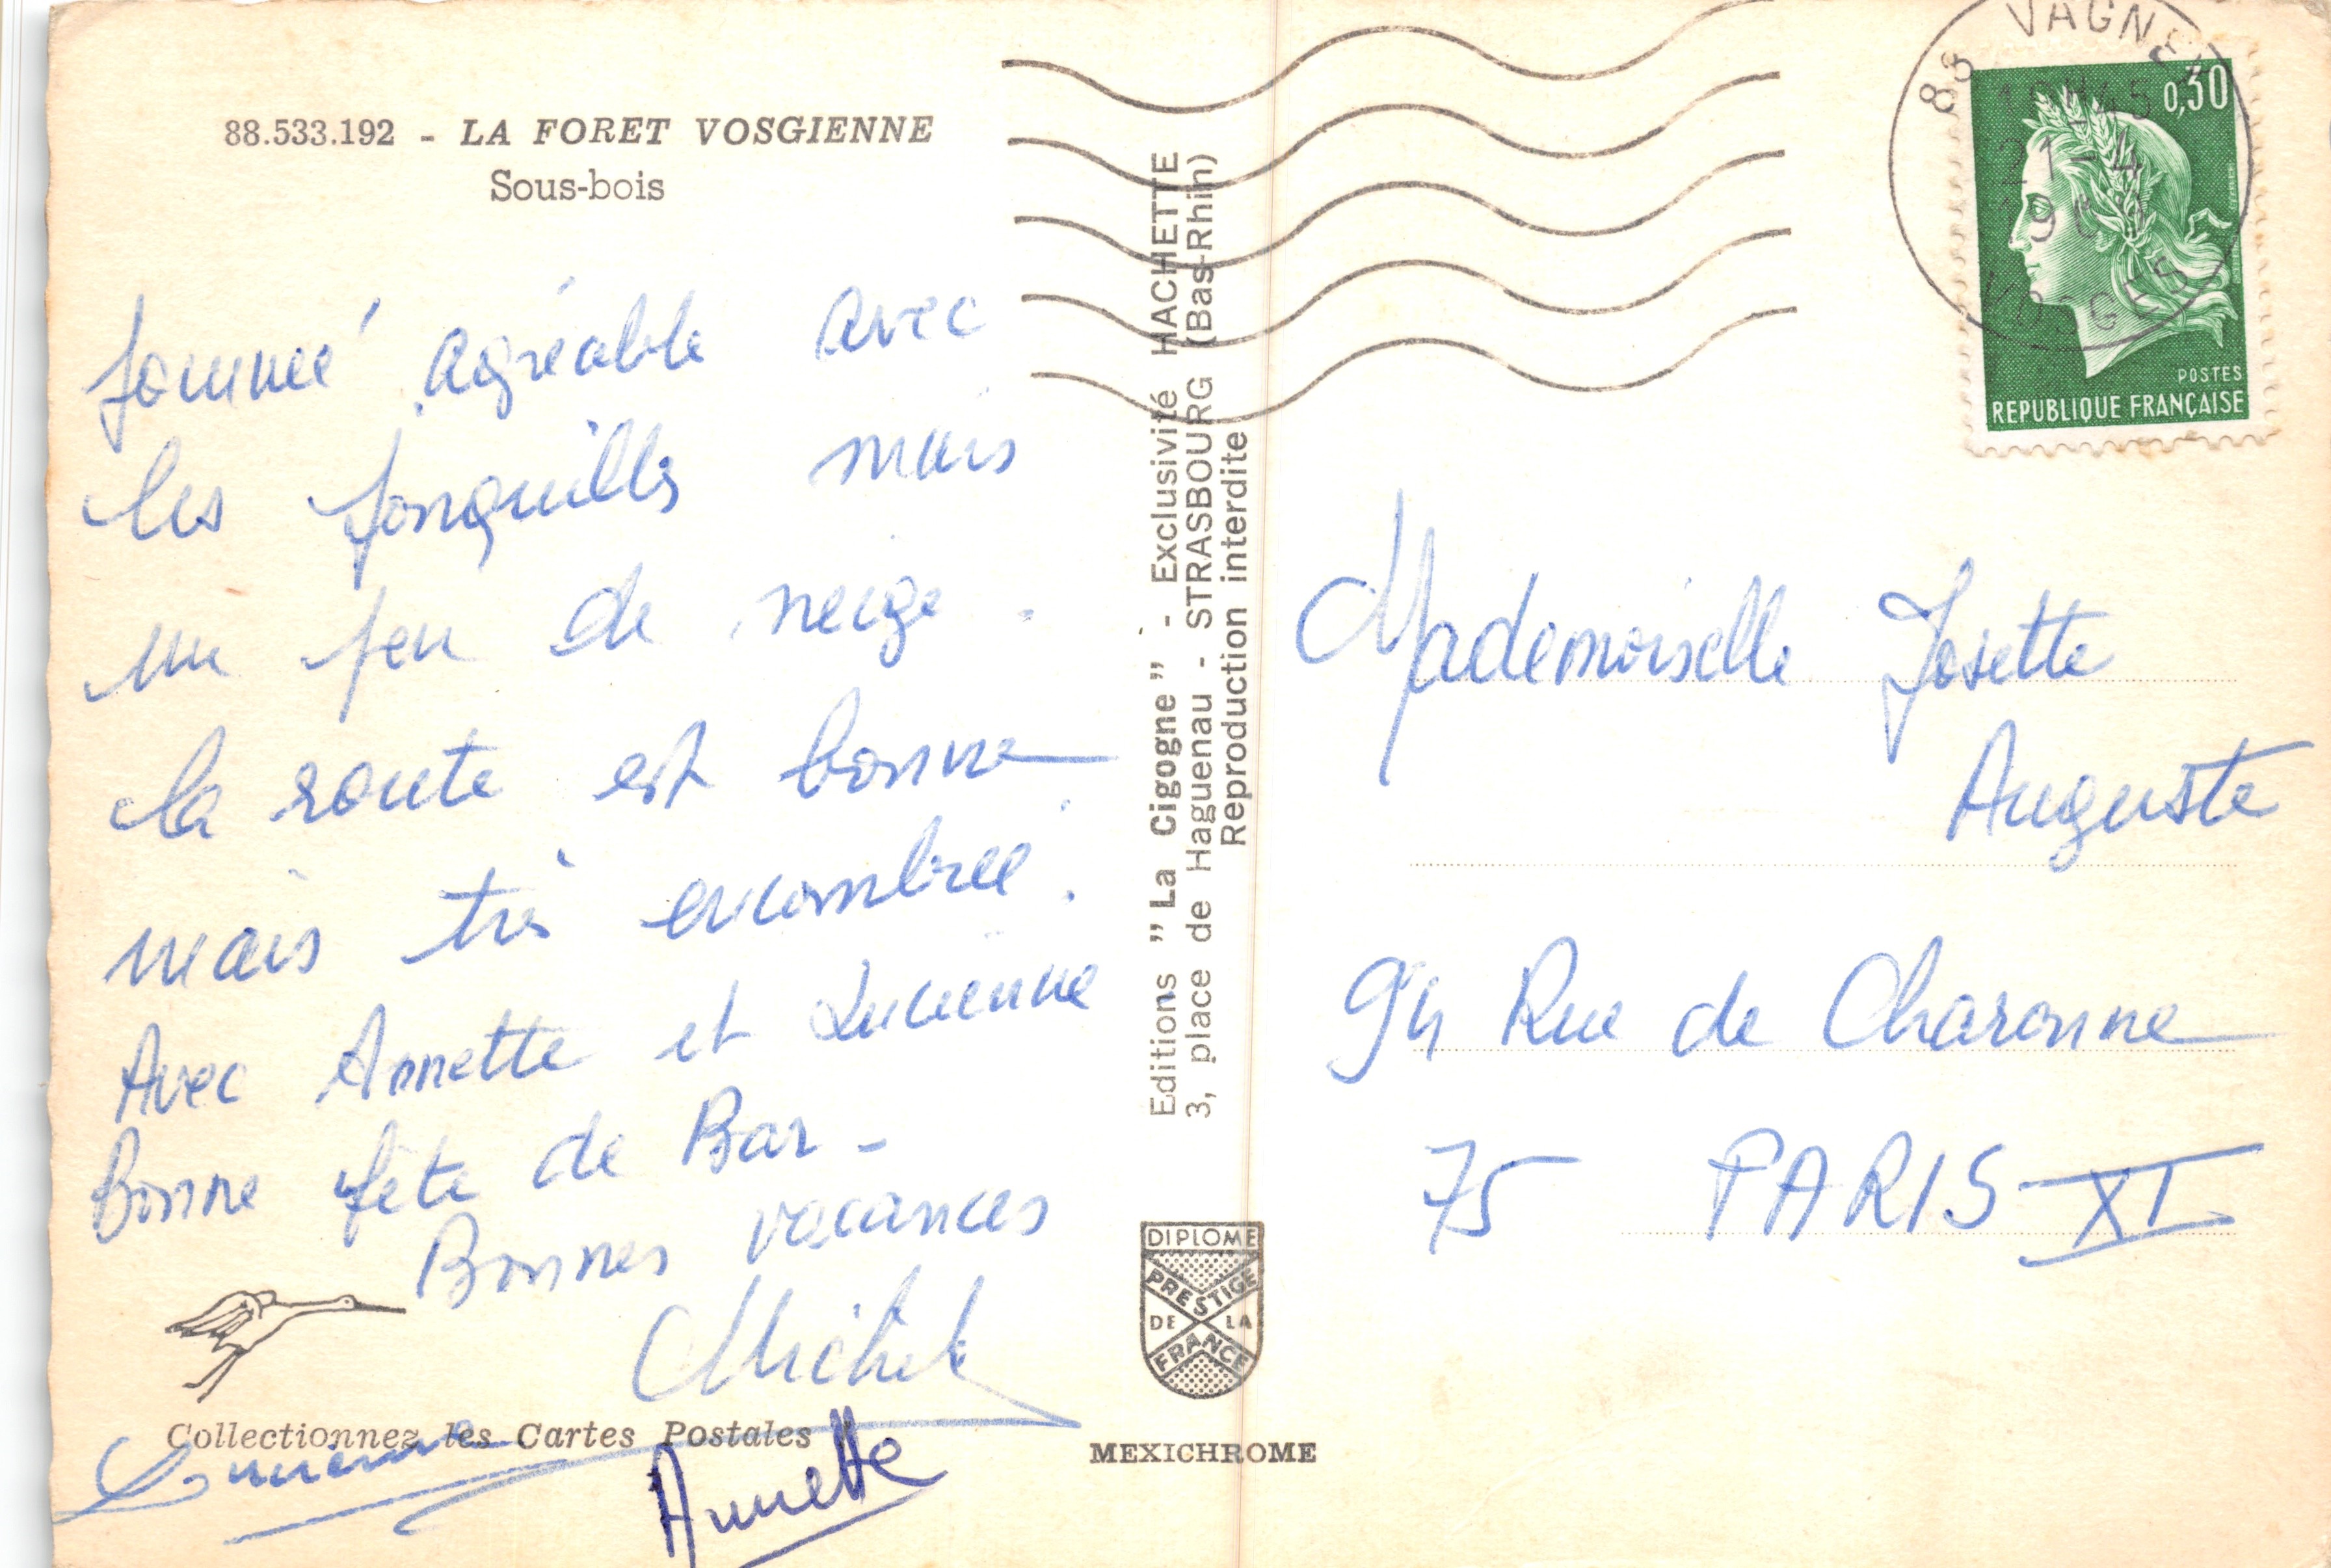 88.533.192 - LA FORET VOSGIENNE
Sous-bois
Journée agréable avec
les jonquilles mais
un peu de neige.
la route est bonne
mais très encombrée.
Avec Annette et Lucienne
Bonne fête de Bar -
Bonnes vacances
Michel
Collectionnez les Cartes Postales
Lucienne
Annette
Editions "La Cigogne" - Exclusivité HACHETTE
3, place de Haguenau - STRASBOURG (Bas-Rhin)
Reproduction interdite
DIPLOME
PRESTIGE
DE LA
FRANCE
MEXICHROME
88 VAGNEY
21-4
VOSGES
0,30
POSTES
REPUBLIQUE FRANÇAISE
Mademoiselle Josette
Auguste
94 Rue de Charonne
75 PARIS XI